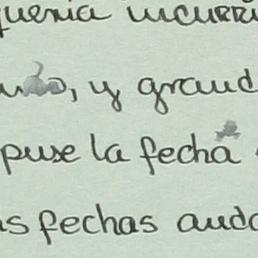 quería incurri
, y grand
puse la fecha
as fechas auda